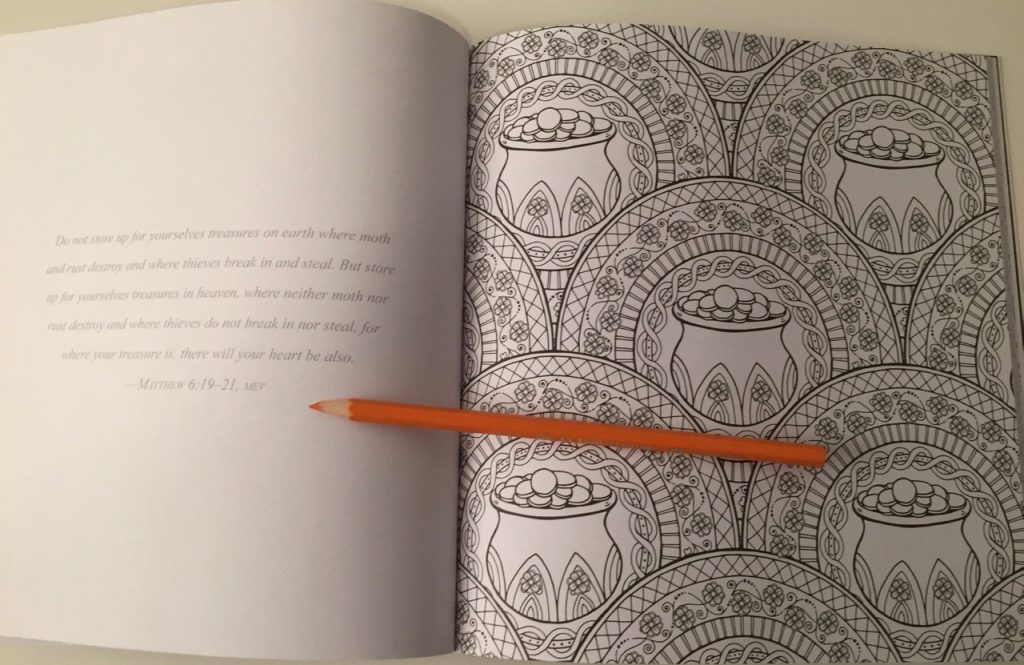 Do not store up for yourselves treasures on earth where moth
and rust destroy and where thieves break in and steal. But store
up for yourselves treasures in heaven, where neither moth nor
rust destroy and where thieves do not break in nor steal, for
where your treasure is, there will your heart be also.
—MATTHEW 6:19–21, MEV